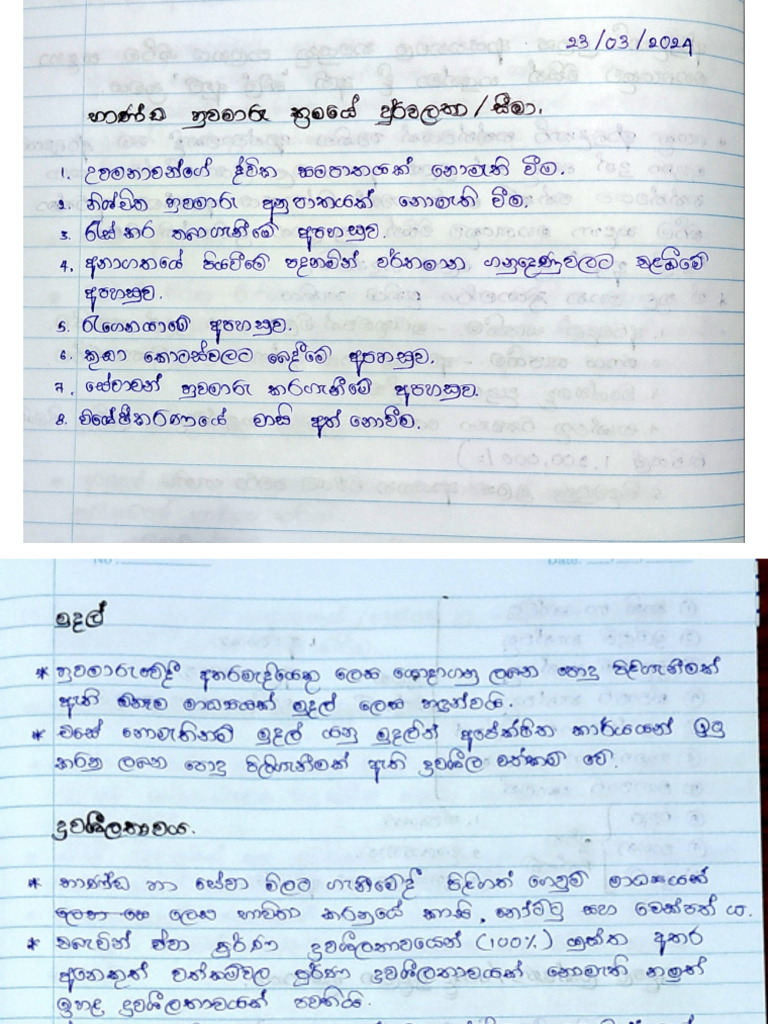 23/03/2024
භාණ්ඩ හුවමාරු ක්‍රමයේ දුර්වලතා / සීමා.
1. උවමනාවන්ගේ ද්විත සමපාතයක් නොමැති වීම.
2. නිශ්චිත හුවමාරු අනුපාතයක් නොමැති වීම.
3. රැස් කර තබාගැනීමේ අපහසුව.
4. අනාගතයේ පියවීමේ පදනමින් වර්තමාන ගනුදෙනුවලට එළඹීමේ
අපහසුව.
5. රැගෙනයාමේ අපහසුව.
6. කුඩා කොටස්වලට බෙදීමේ අපහසුව.
7. සේවාවන් හුවමාරු කරගැනීමේ අපහසුව.
8. විශේෂීකරණයේ වාසි අත් නොවීම.
No : Date:
මුදල්
* හුවමාරුවේදී අතරමැදියෙකු ලෙස යොදාගනු ලබන පොදු පිළිගැනීමක්
ඇති ඕනෑම මාධ්‍යයක් මුදල් ලෙස හඳුන්වයි.
* එසේ නොමැතිනම් මුදල් යනු මුදලින් අපේක්ෂිත කාර්යයන් ඉටු
කරනු ලබන පොදු පිලිගැනීමක් ඇති ද්‍රවශීල වත්කම් වේ.
ද්‍රවශීලතාවය.
* භාණ්ඩ හා සේවා මිලට ගැනීමේදී පිළිගත් ගෙවුම් මාධ්‍යයක්
ලෙස භාවිතා කරනුයේ කාසි, නෝට්ටු සහ චෙක්පත් ය.
* එබැවින් ඒවා පූර්ණ ද්‍රවශීලතාවයෙන් (100%) යුක්ත අතර
අනෙකුත් වත්කම්වල පූර්ණ ද්‍රවශීලතාවයක් නොමැති නමුත්
ඉහළ ද්‍රවශීලතාවයක් පවතියි.